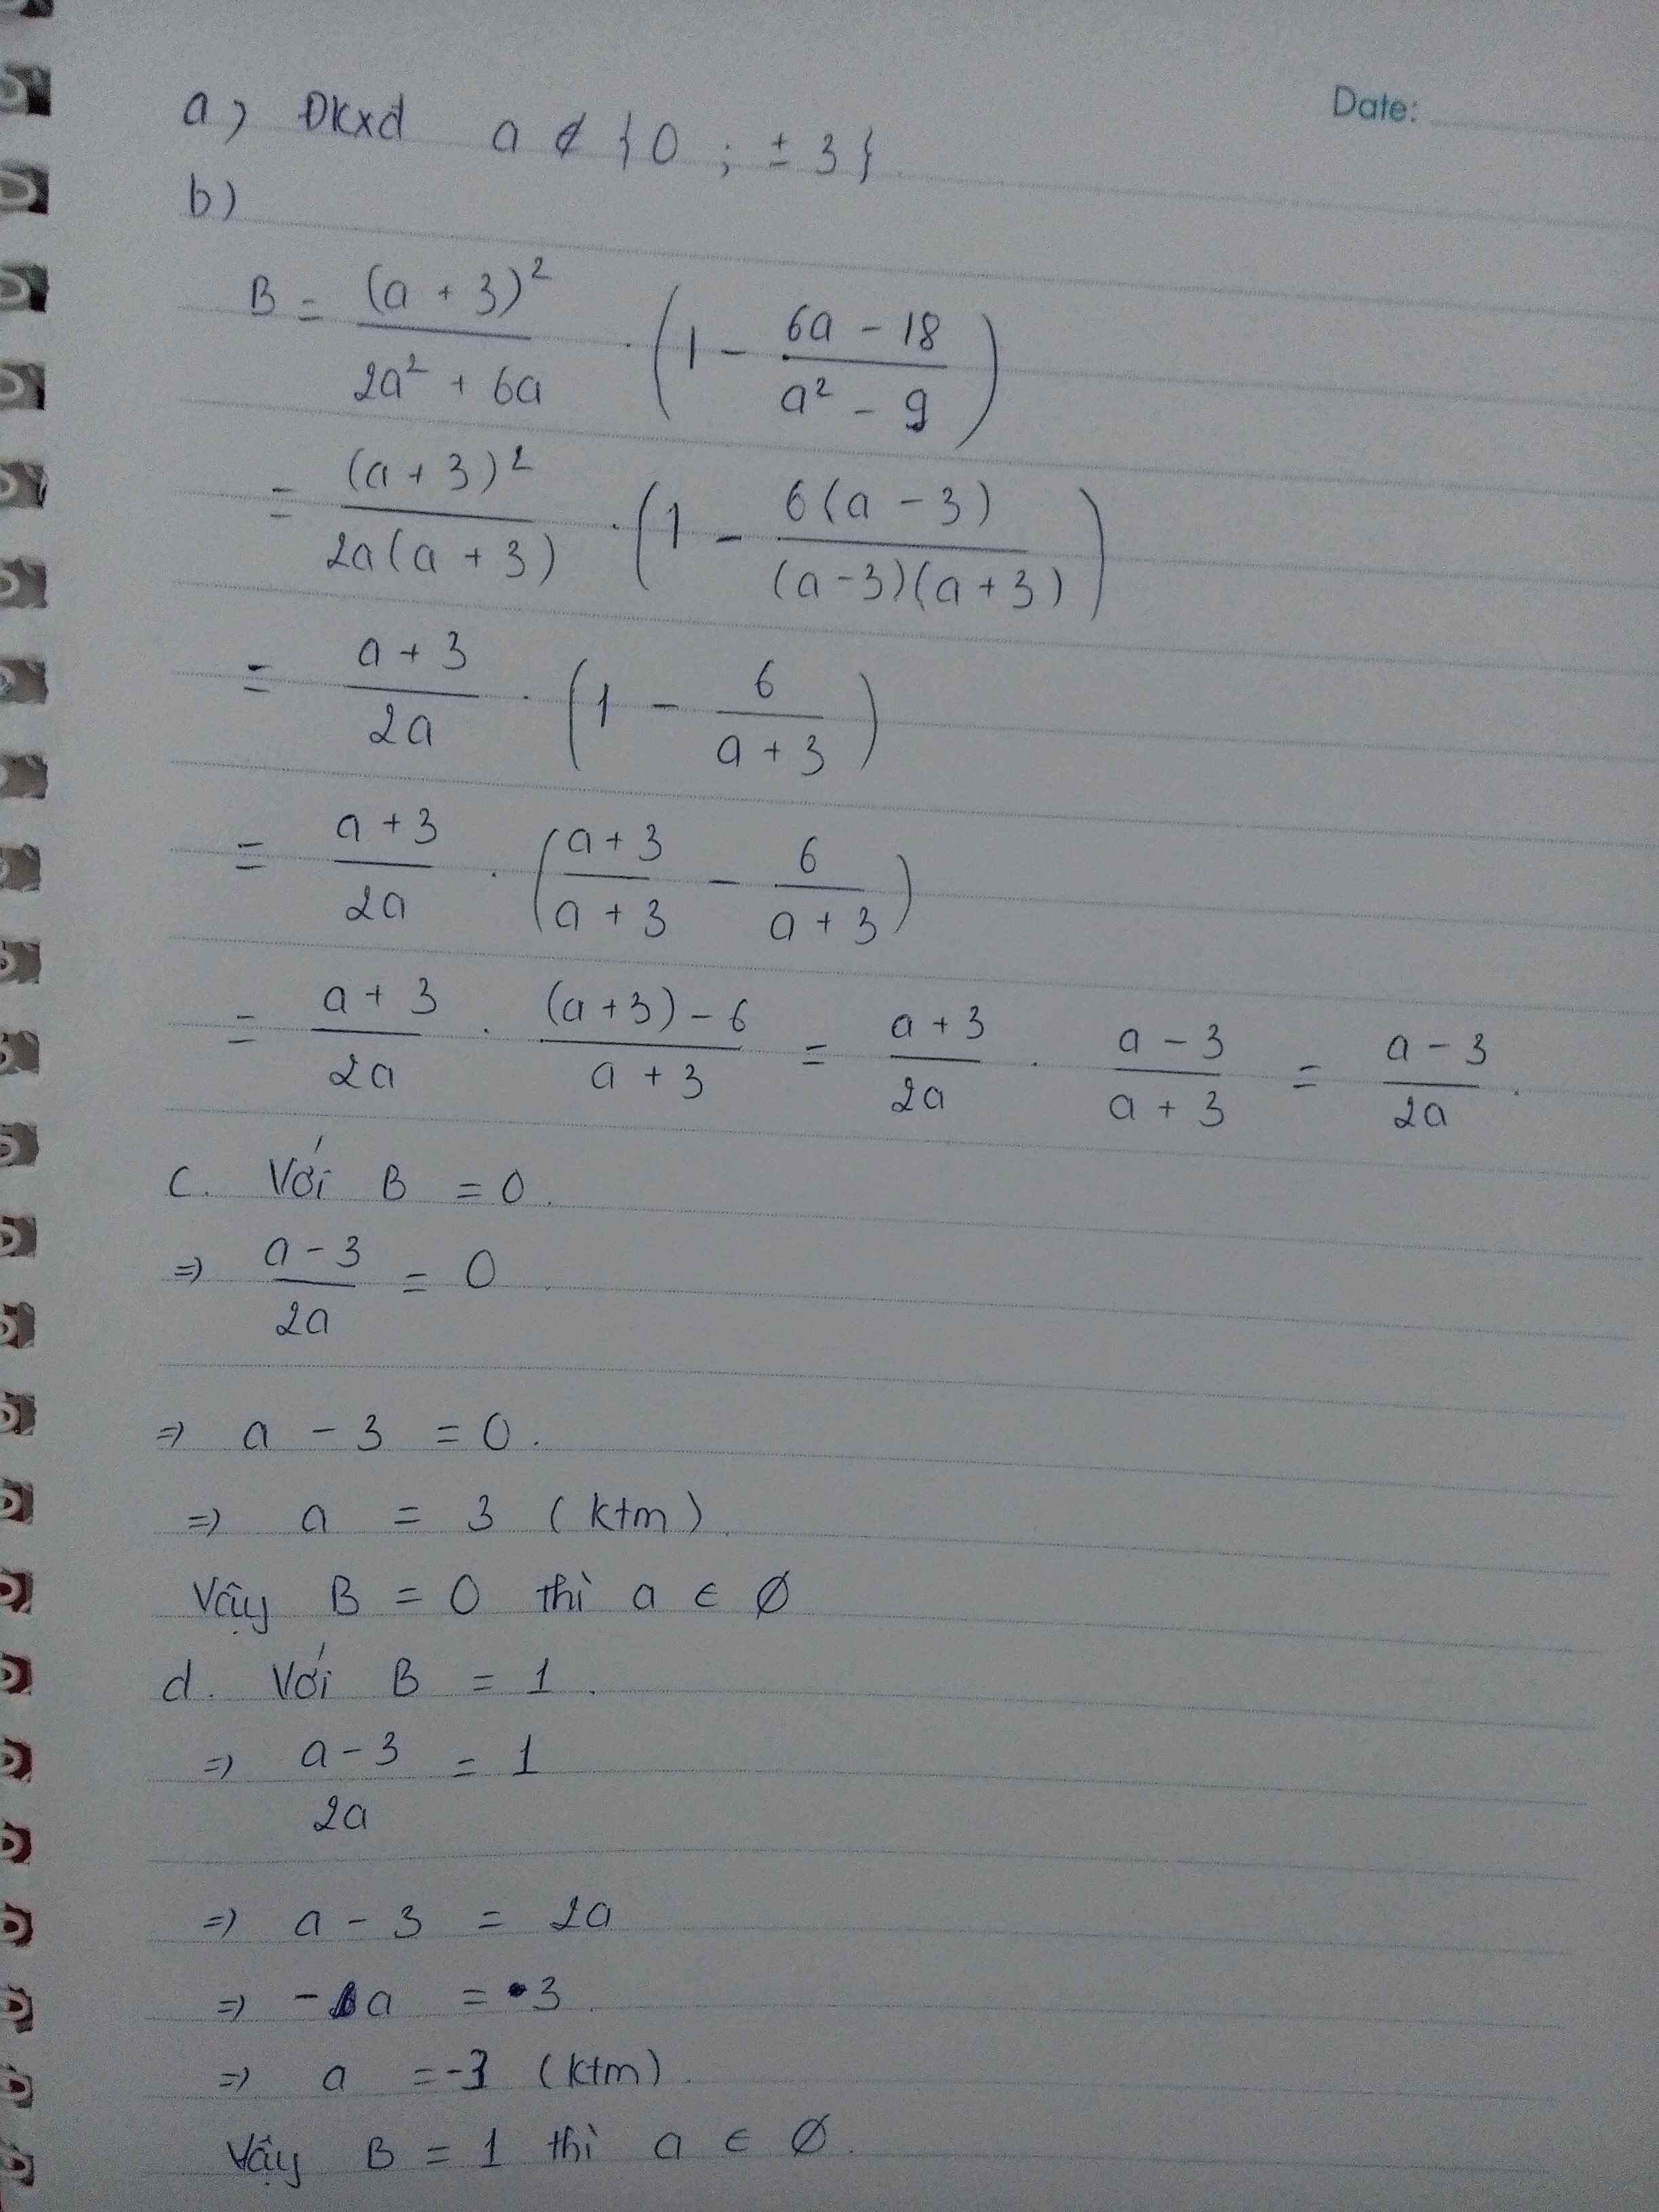 Date:
a) Đkxđ a ∉ { 0 ; ± 3 }
b)
B = (a + 3)² / (2a² + 6a) · (1 - (6a - 18) / (a² - 9))
= (a + 3)² / 2a(a + 3) · (1 - 6(a - 3) / (a - 3)(a + 3))
= (a + 3) / 2a · (1 - 6 / (a + 3))
= (a + 3) / 2a · ((a + 3) / (a + 3) - 6 / (a + 3))
= (a + 3) / 2a · ((a + 3) - 6) / (a + 3) = (a + 3) / 2a · (a - 3) / (a + 3) = (a - 3) / 2a .
c. Với B = 0.
=> (a - 3) / 2a = 0
=> a - 3 = 0.
=> a = 3 (ktm).
Vậy B = 0 thì a ∈ ∅
d. Với B = 1.
=> (a - 3) / 2a = 1
=> a - 3 = 2a
=> - a = 3
=> a = -3 (ktm).
Vậy B = 1 thì a ∈ ∅.